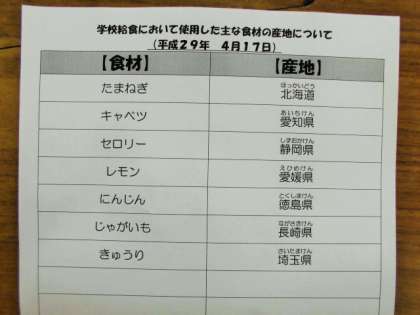 学校給食において使用した主な食材の産地について
（平成２９年　４月１７日）
【食材】　【産地】
たまねぎ　北海道
ほっかいどう
キャベツ　愛知県
あいちけん
セロリー　静岡県
しずおかけん
レモン　愛媛県
えひめけん
にんじん　徳島県
とくしまけん
じゃがいも　長崎県
ながさきけん
きゅうり　埼玉県
さいたまけん